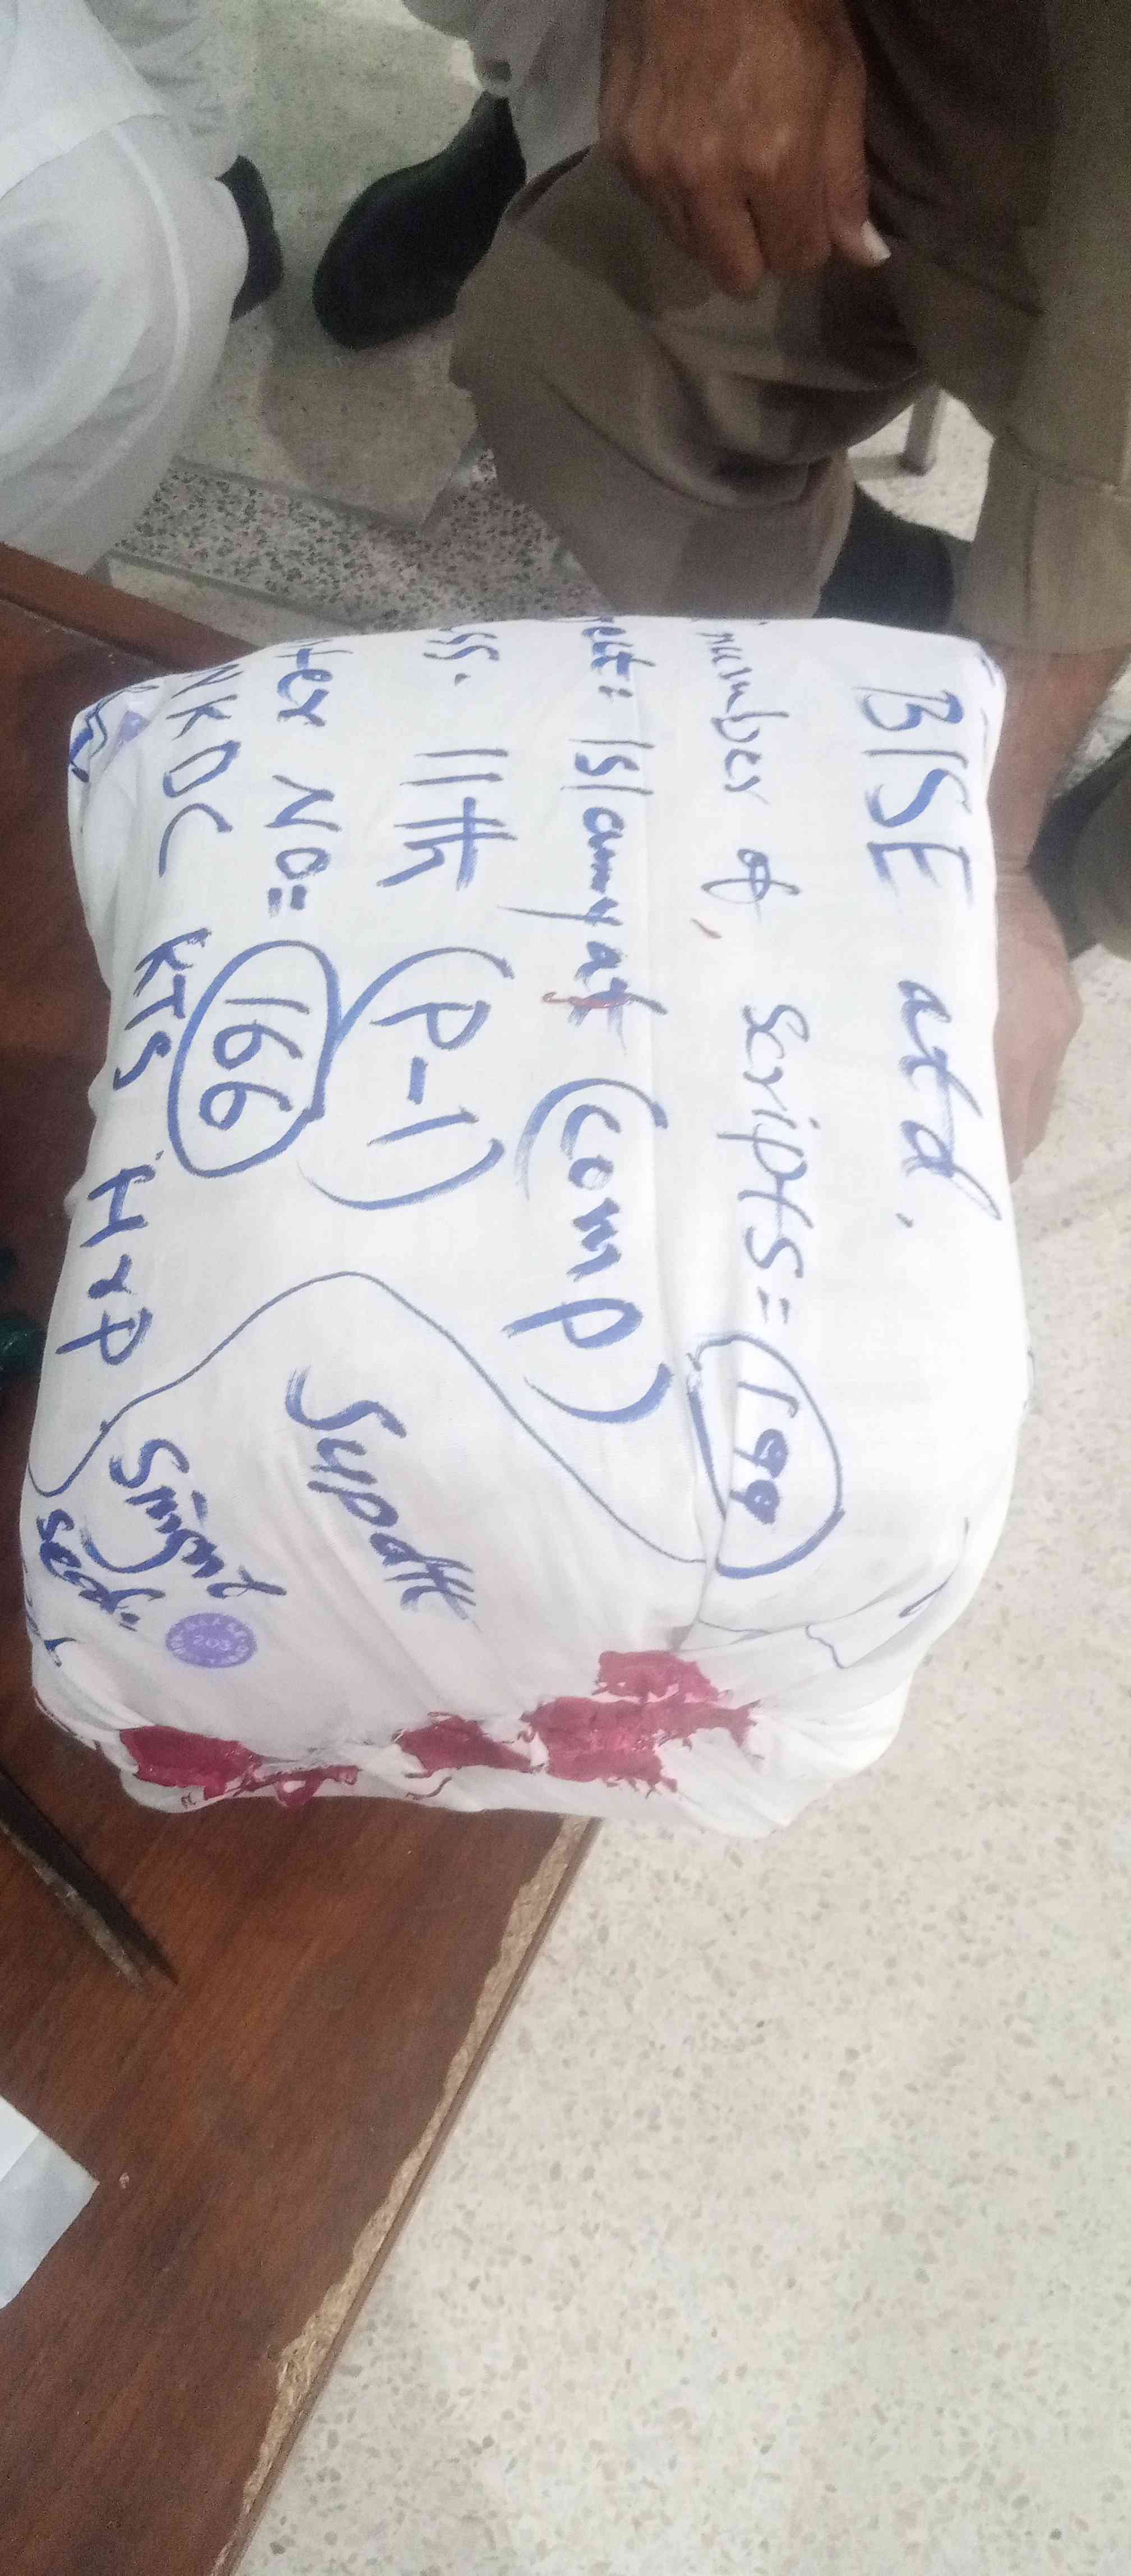 BISE atd.
number of scripts = 199
ject: Islamyat (comp)
ss. 11th (P-1)
ter No = 166
NKDC KTS Hrp
Supdtt